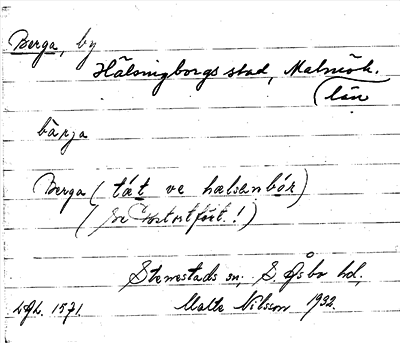 Berga, by
Hälsingborgs stad, Malmöh.
län
bärja
Berga (tät ve hælsenbór)
(se Postortfört.!)
Stenestads sn, S. Åsbo hd,
LAL. 1571. Malte Nilsson 1932.